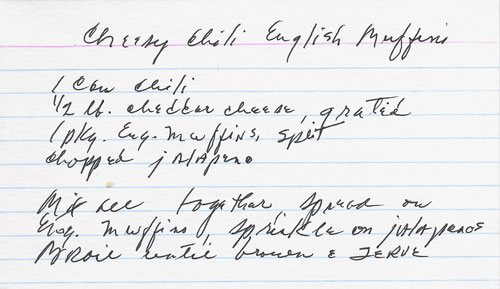 Cheesy Chili English Muffins
1 can chili
1/2 lb. cheddar cheese, grated
1 pkg. Eng. Muffins, split
chopped jalapeno
Mix all together, spread on
Eng. Muffins, sprinkle on jalapenos
Broil until brown & SERVE